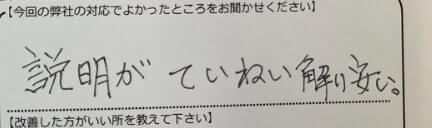 【今回の弊社の対応でよかったところをお聞かせください】
説明が ていねい 解り安い。
【改善した方がいい所を教えて下さい】